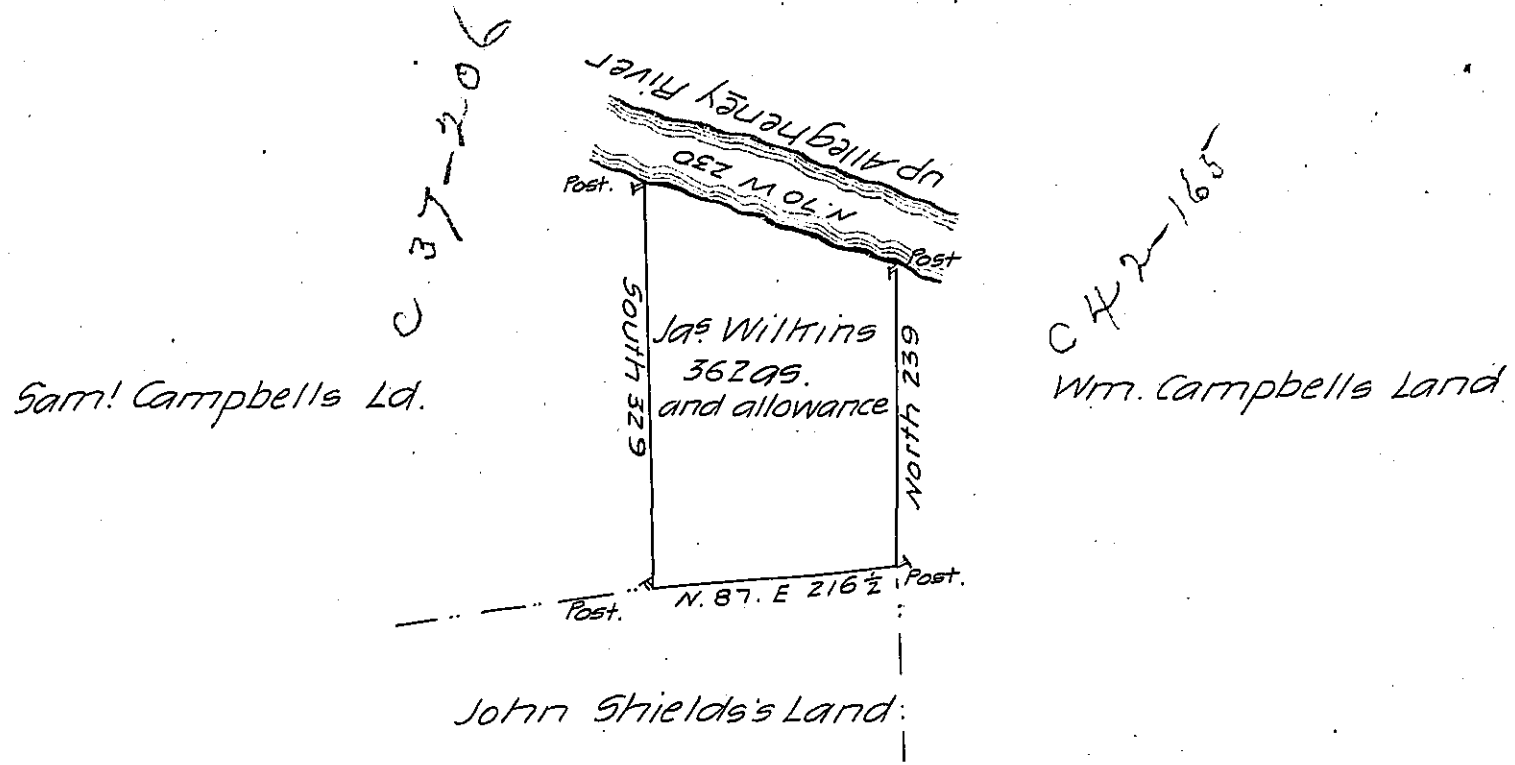 C 37-206
up Allegheney River
N. 70 W 230
Post.
Post
C 42-165
SOUTH 329
Jas. Wilkins
362 as.
and allowance
NORTH 239
Sam! Campbells Ld.
Wm. Campbells Land
Post.
N. 87. E 216 ½
Post.
John Shields's Land